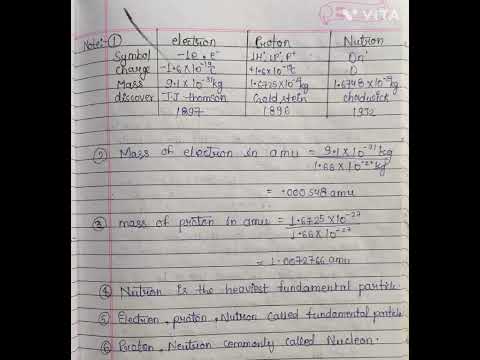 VITA
Note:- ① electron Proton Nutron
Symbol -1e°, e⁻ 1H¹, 1P¹, P⁺ 0n¹
charge -1.6×10⁻¹⁹c +1.6×10⁻¹⁹c 0
Mass 9.1×10⁻³¹kg 1.6725×10⁻²⁷kg 1.6748×10⁻²⁷kg
discover J.J. thomson Gold stein chadwick
1897 1896 1932
② Mass of electron in amu = 9.1×10⁻³¹ kg
1.66×10⁻²⁷ kg
= .000548 amu
③ mass of proton in amu = 1.6725×10⁻²⁷
1.66×10⁻²⁷
= 1.0072766 amu
④ Nutron is the heaviest fundamental particle
⑤ Electron, proton, Nutron called fundamental particle
⑥ Proton, Neutron commonly called Nucleon.